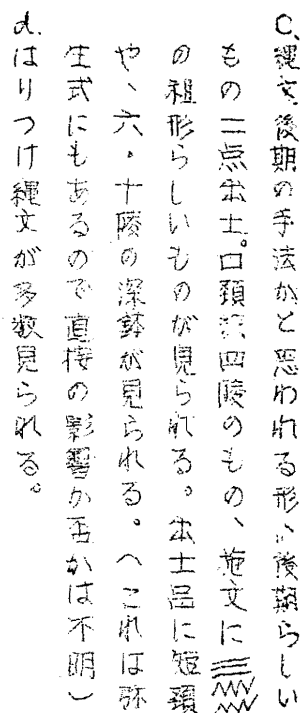 C、縄文後期の手法かと思われる形い後期らしい
もの二点出土。口頚 四陵のもの、施文に
の祖形らしいものが見られる。出土品に短頚
や、六・十陵の深鉢が見られる。(これは弥
生式にもあるので直接の影響か否かは不明)
d.はりつけ縄文が多数見られる。